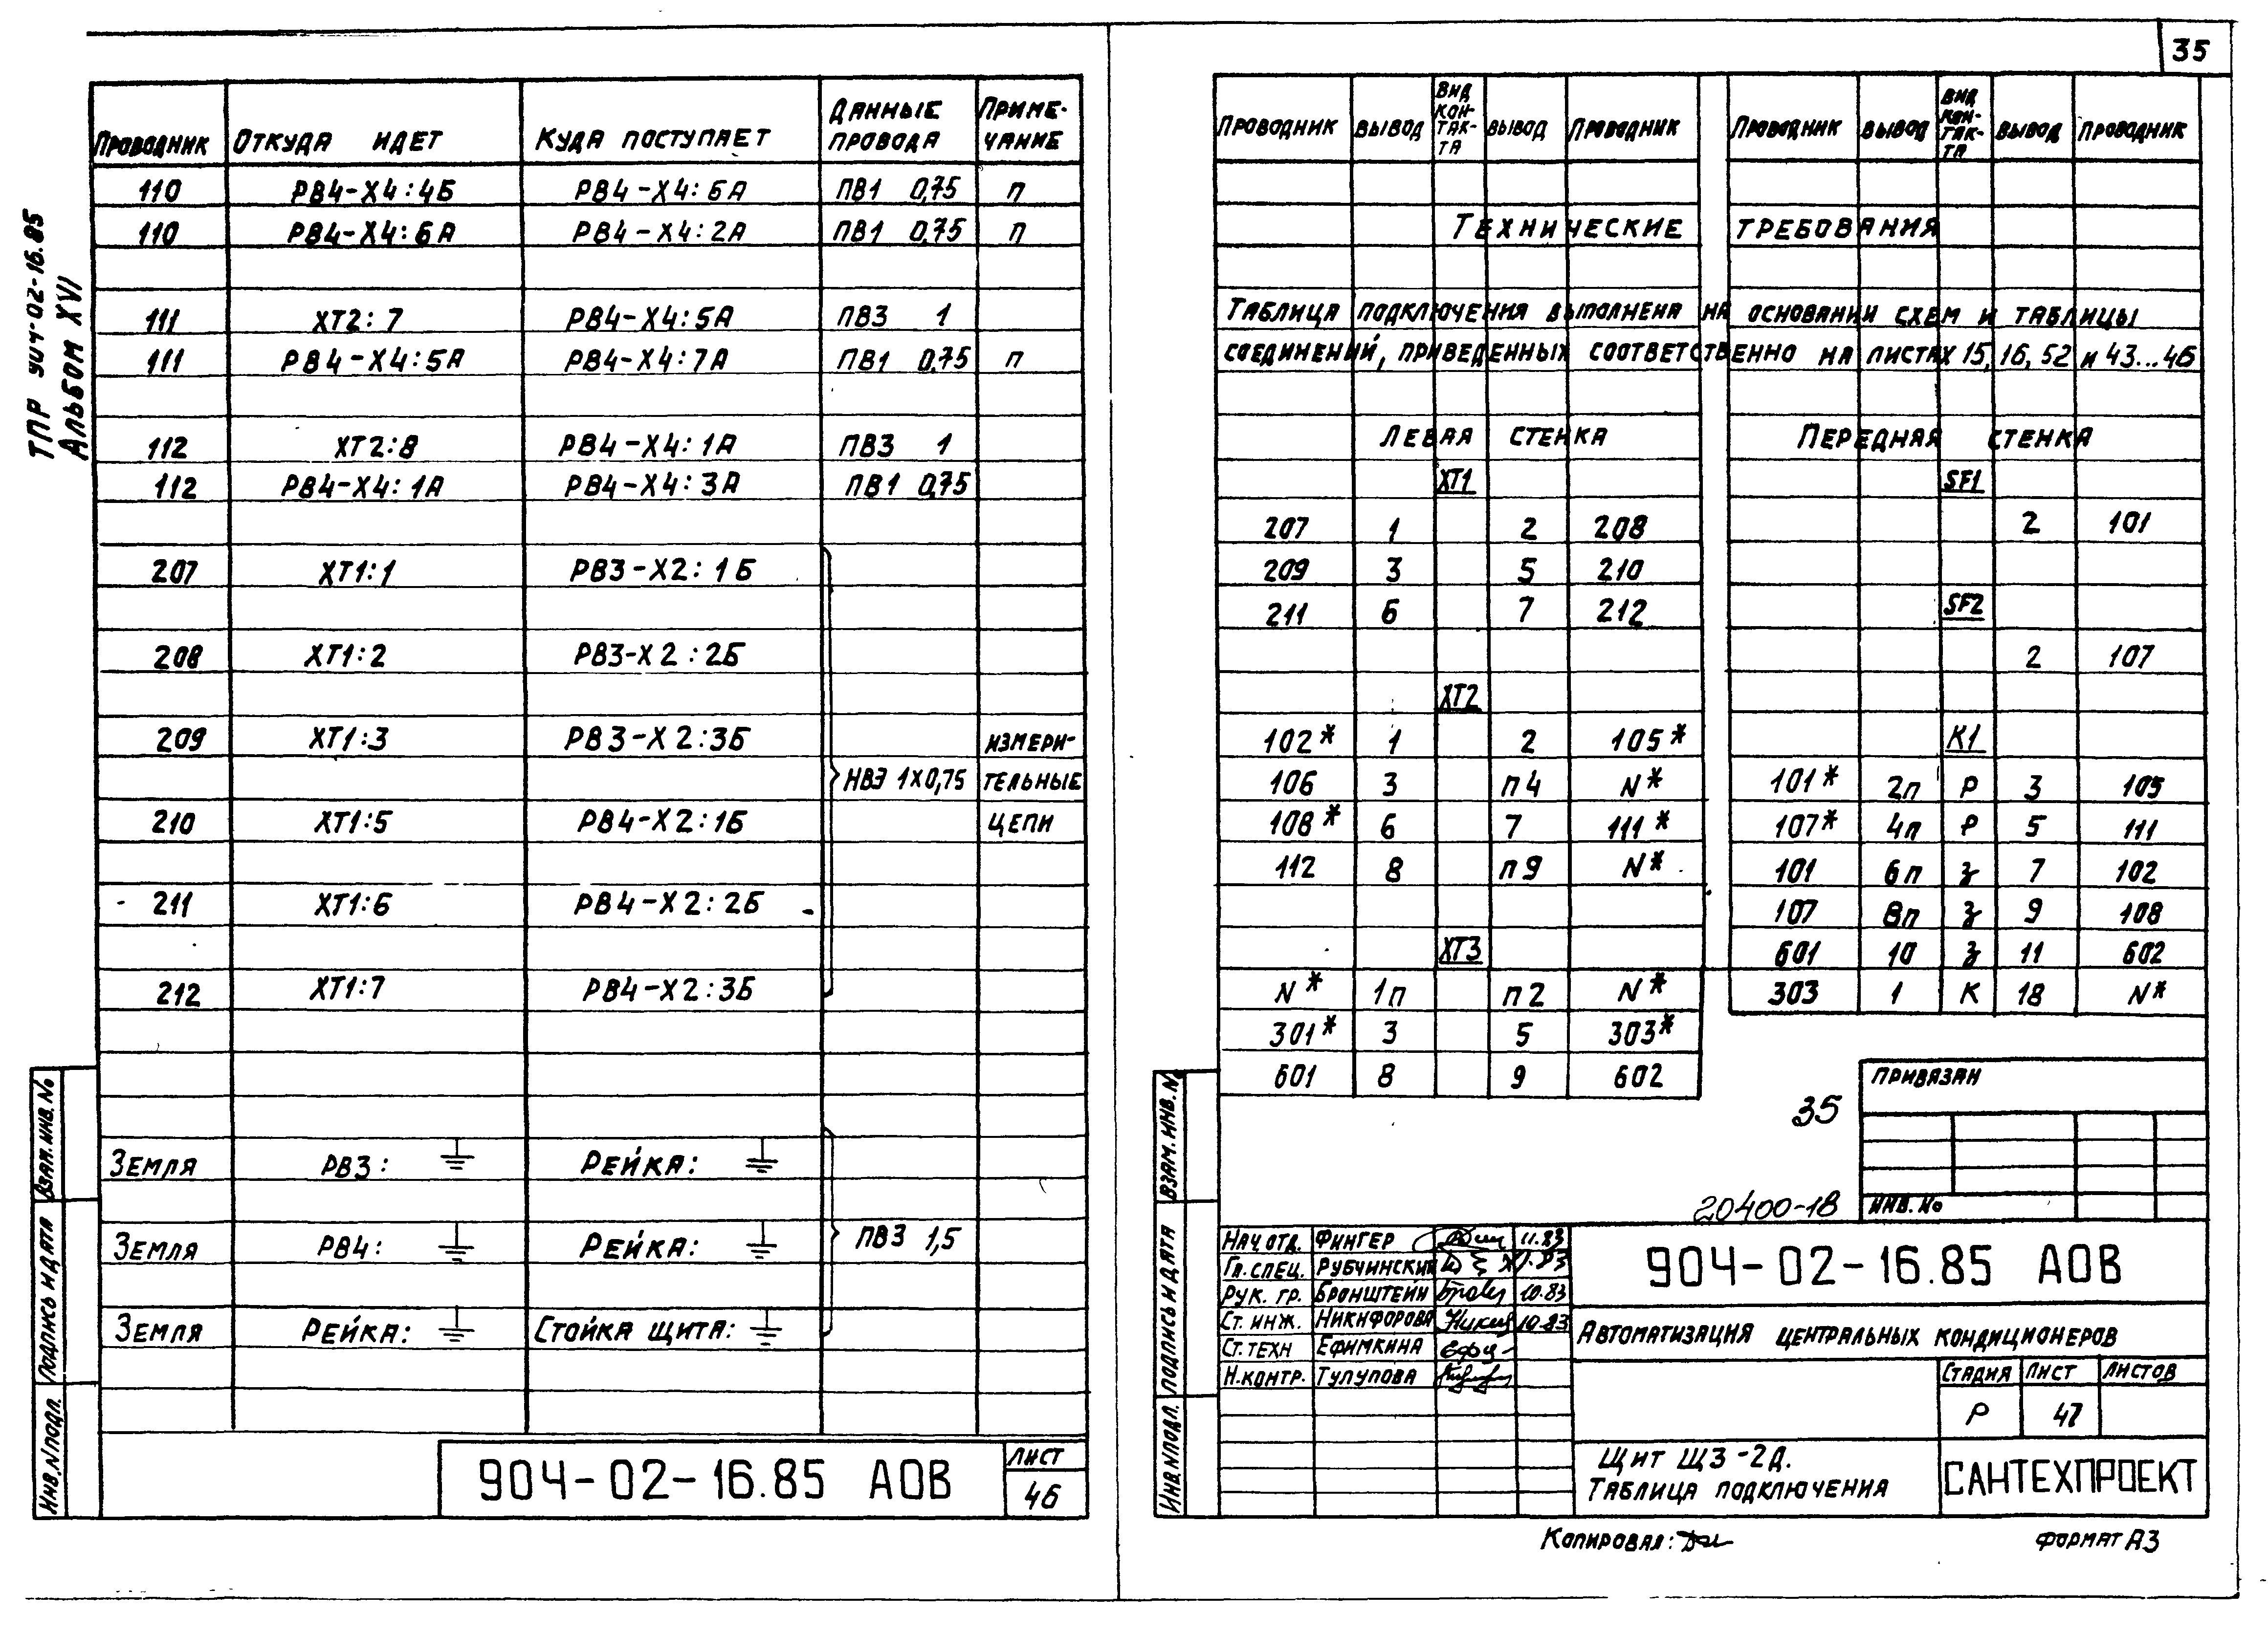 35
ТПР 904-02-16.85
Альбом XVI
Проводник Откуда идет Куда поступает Данные провода Приме-чание
110 РВ4-Х4:4Б РВ4-Х4:6А ПВ1 0,75 п
110 РВ4-Х4:6А РВ4-Х4:2А ПВ1 0,75 п
111 ХТ2:7 РВ4-Х4:5А ПВ3 1
111 РВ4-Х4:5А РВ4-Х4:7А ПВ1 0,75 п
112 ХТ2:8 РВ4-Х4:1А ПВ3 1
112 РВ4-Х4:1А РВ4-Х4:3А ПВ1 0,75
207 ХТ1:1 РВ3-Х2:1Б
208 ХТ1:2 РВ3-Х2:2Б
209 ХТ1:3 РВ3-Х2:3Б измери-
НВЭ 1х0,75 тельные
210 ХТ1:5 РВ4-Х2:1Б цепи
211 ХТ1:6 РВ4-Х2:2Б
212 ХТ1:7 РВ4-Х2:3Б
Земля РВ3: Рейка:
Земля РВ4: Рейка: ПВ3 1,5
Земля Рейка: Стойка щита:
Взам. инв. №
Подпись и дата
Инв. № подл.
904-02-16.85 АОВ
Лист
46
Проводник Вывод Вид кон-так-та Вывод Проводник Проводник Вывод Вид кон-так-та Вывод Проводник
Технические требования
Таблица подключения выполнена на основании схем и таблицы
соединений, приведенных соответственно на листах 15, 16, 52 и 43...46
Левая стенка Передняя стенка
ХТ1 SF1
207 1 2 208 2 101
209 3 5 210
211 6 7 212 SF2
2 107
ХТ2
102* 1 2 105* К1
106 3 п4 N* 101* 2п Р 3 105
108* 6 7 111* 107* 4п Р 5 111
112 8 п9 N* 101 6п з 7 102
107 8п з 9 108
ХТ3 601 10 з 11 602
N* 1п п2 N* 303 1 К 18 N*
301* 3 5 303*
601 8 9 602
Привязан
35
20400-18
Инв. №
Взам. инв. №
Подпись и дата
Инв. № подл.
Нач. отд. Фингер 11.83
Гл. спец. Рубчинский
Рук. гр. Бронштейн 10.83
Ст. инж. Никифорова 10.83
Ст. техн Ефимкина
Н. контр. Тулупова
904-02-16.85 АОВ
Автоматизация центральных кондиционеров
Стадия Лист Листов
Р 47
Щит Щ3-2Д.
Таблица подключения
САНТЕХПРОЕКТ
Копировал:
Формат А3